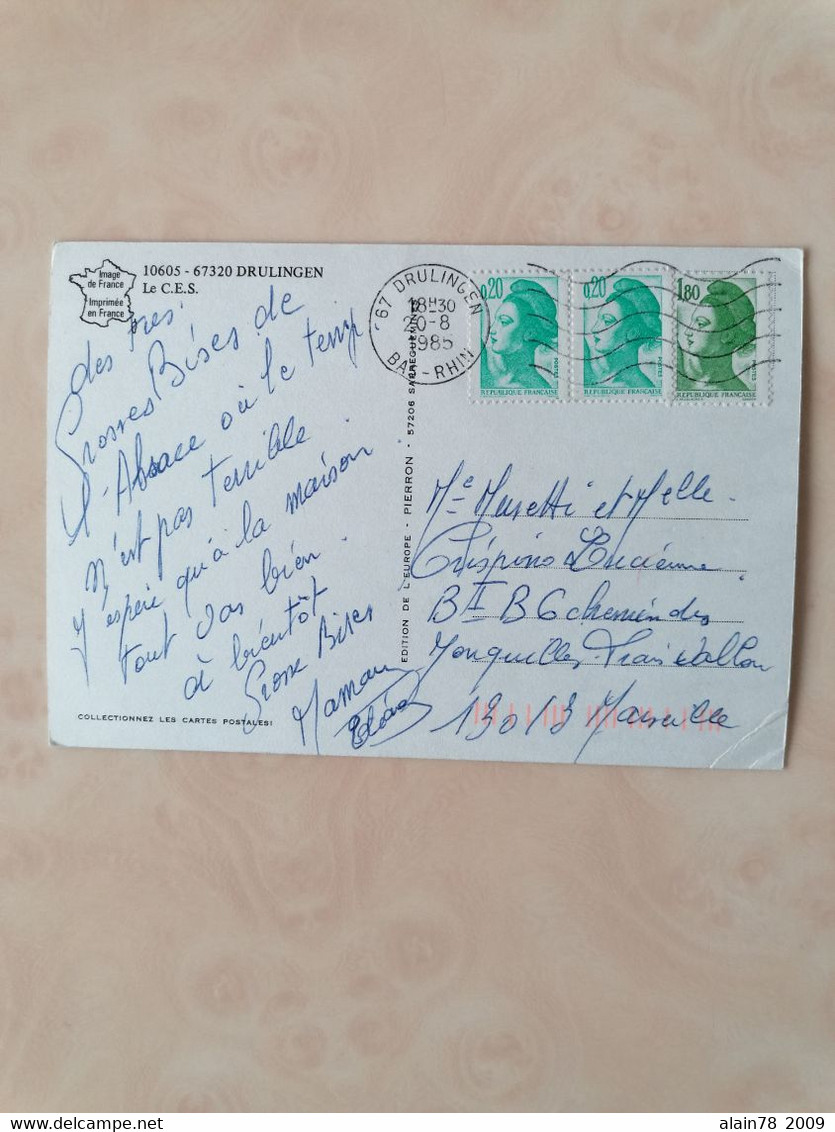 Image
de France
Imprimée
en France
10605 - 67320 DRULINGEN
Le C.E.S.
des
Grosses Bises de
l'Alsace où le temps
n'est pas terrible
J'espère qu'à la maison
tout vas bien.
à bientôt
Grosse Bises
Maman
COLLECTIONNEZ LES CARTES POSTALES!
EDITION DE L'EUROPE - PIERRON - 57206 SARREGUEMINES
67 DRULINGEN
18H30
20-8
1985
BAS-RHIN
0,20
POSTES
REPUBLIQUE FRANÇAISE
0,20
POSTES
REPUBLIQUE FRANÇAISE
1,80
POSTES
REPUBLIQUE FRANÇAISE
Me Musetti et Melle
Crispino Lucienne
Bt B6 chemin des
Jonquilles Frais Vallon
13013 Marseille
alain78 2009